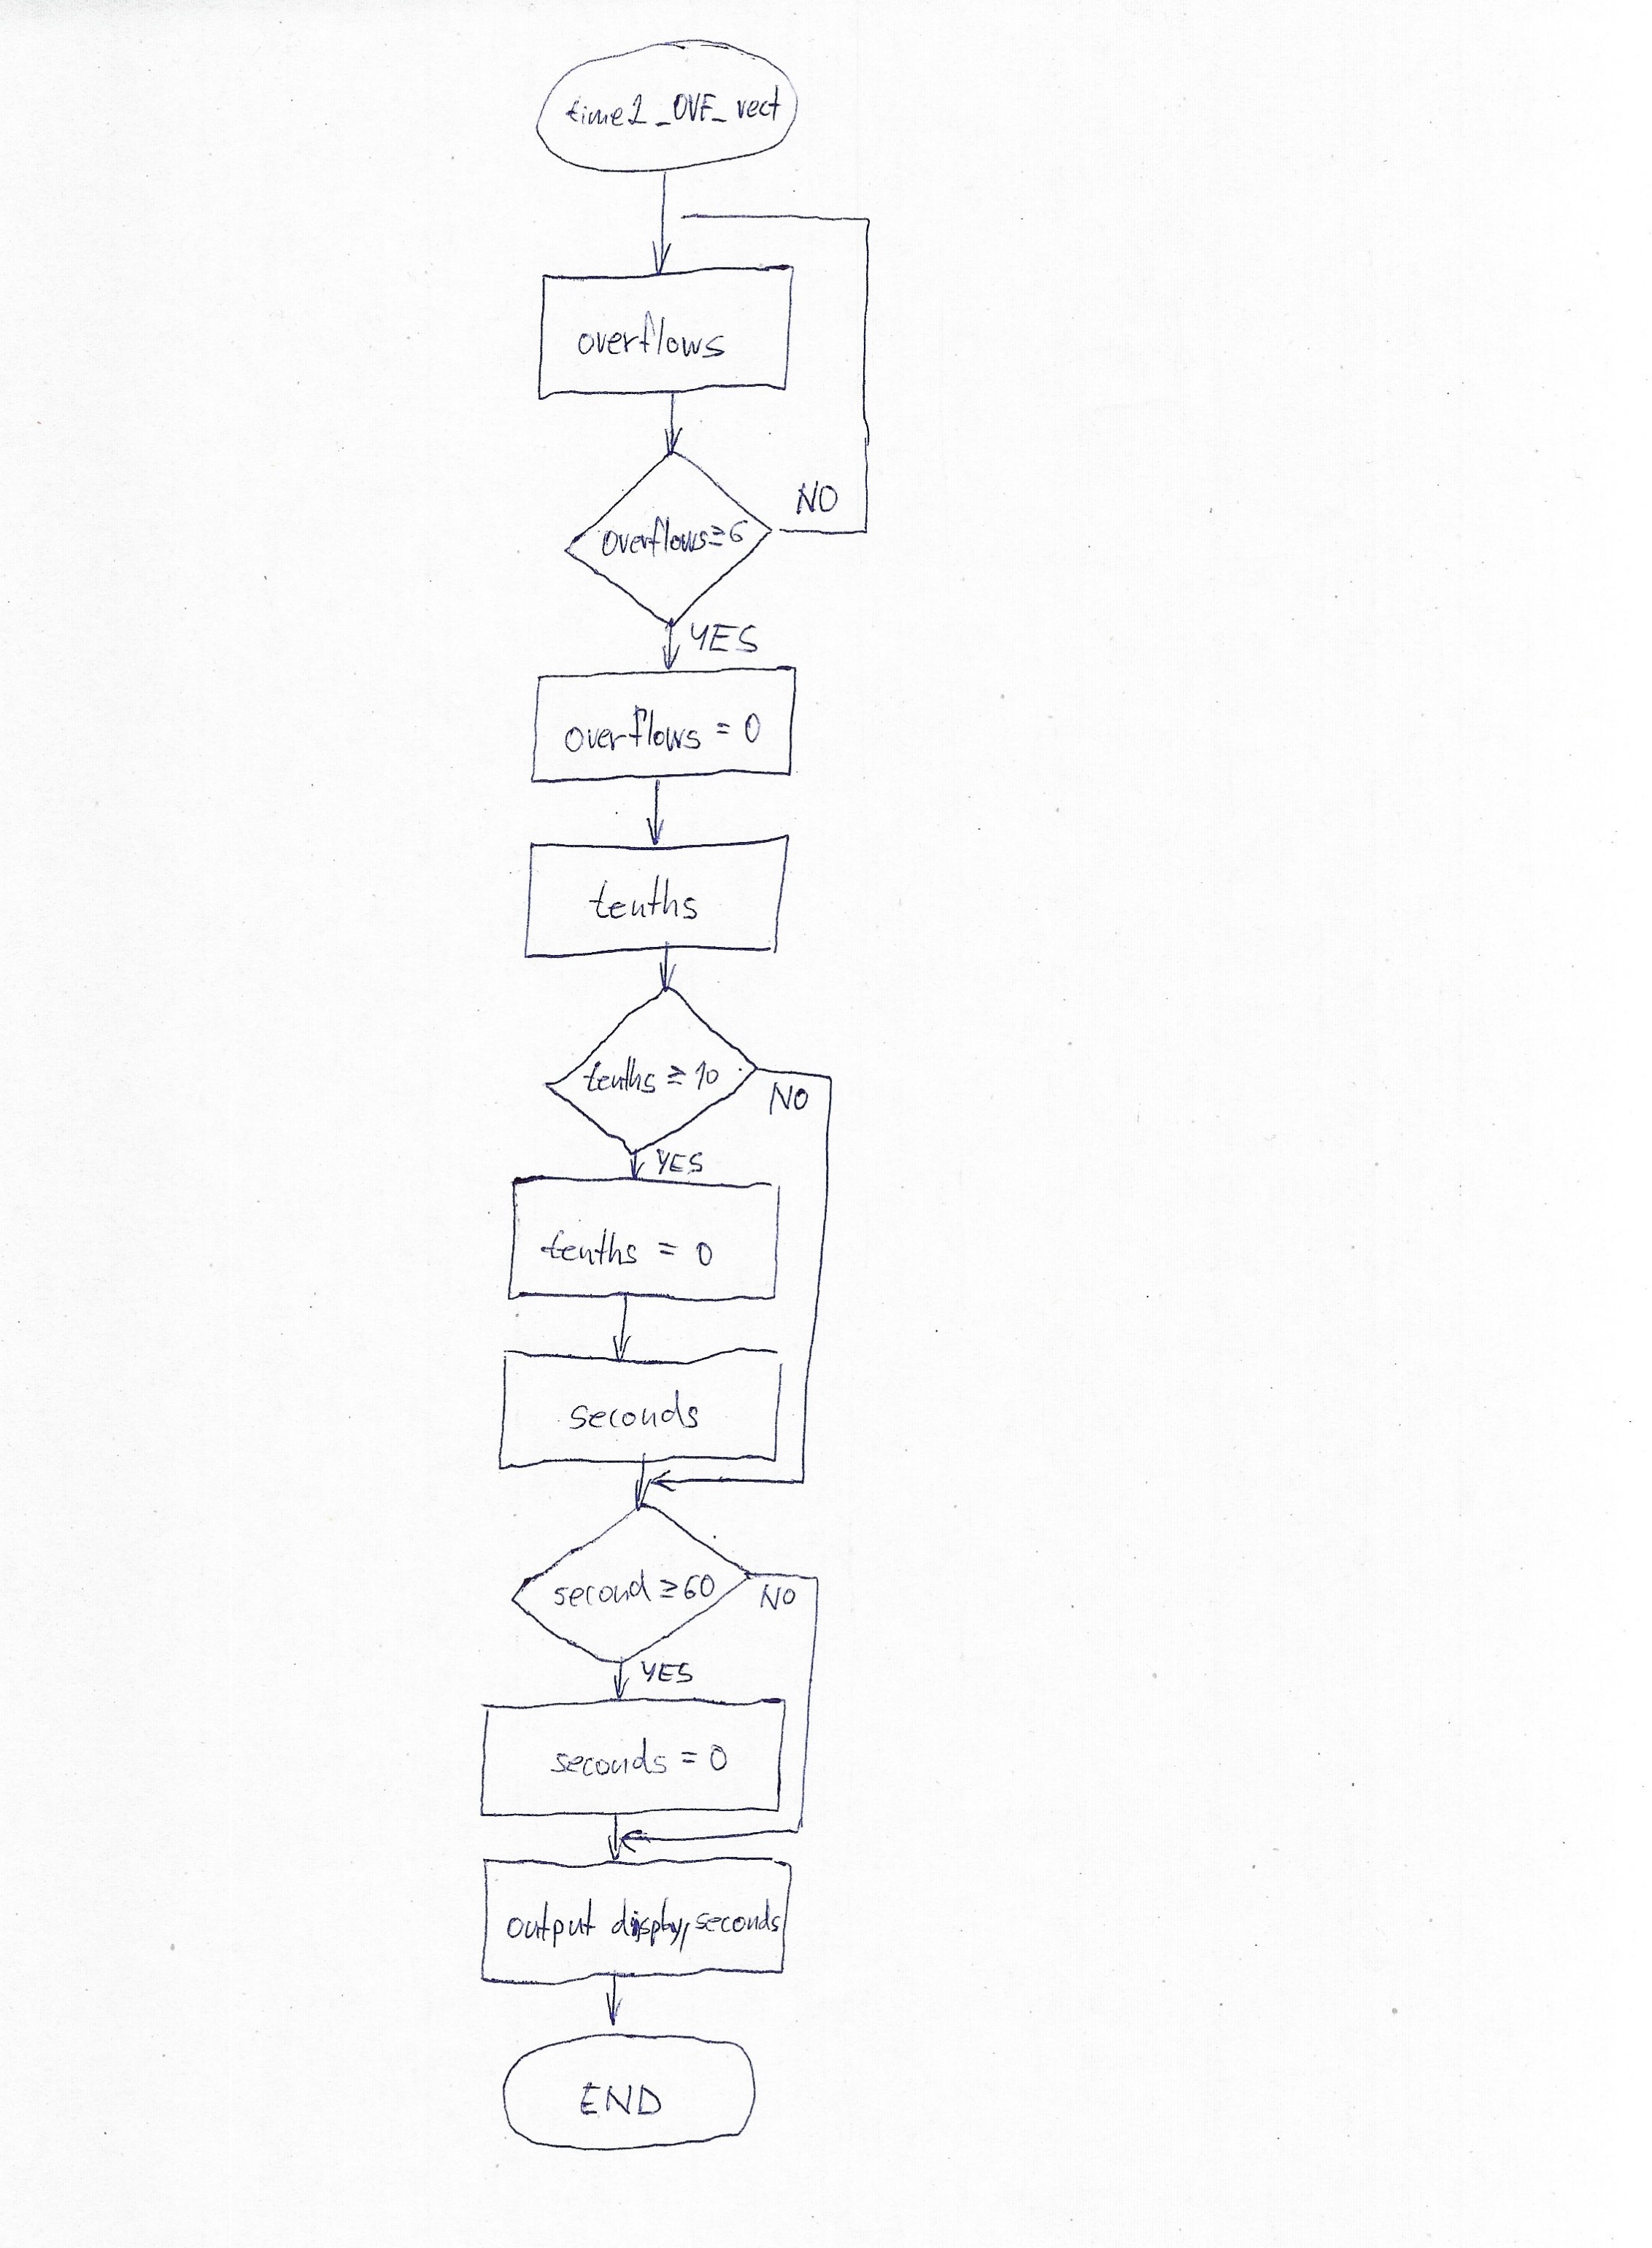 time2_OVF_vect
overflows
overflows≥6
NO
YES
overflows = 0
tenths
tenths ≥ 10
NO
YES
tenths = 0
seconds
second ≥ 60
NO
YES
seconds = 0
output display, seconds
END